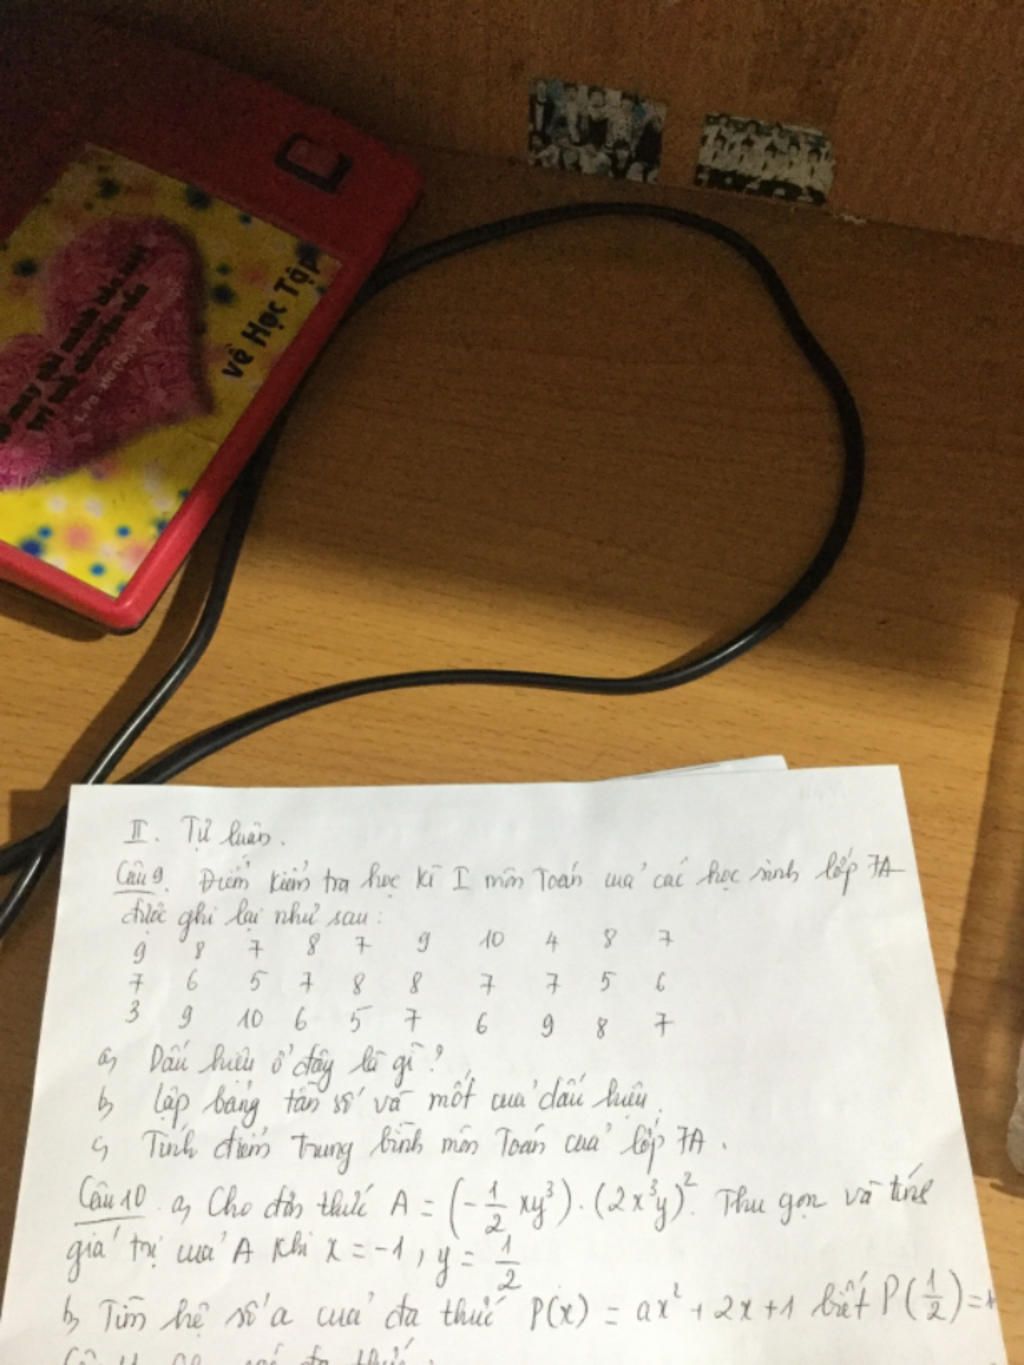 về Học Tập
II. Tự luận.
Câu 9. Điểm kiểm tra học kì I môn Toán của các học sinh lớp 7A
được ghi lại như sau:
9 8 7 8 7 9 10 4 8 7
7 6 5 7 8 8 7 7 5 6
3 9 10 6 5 7 6 9 8 7
a, Dấu hiệu ở đây là gì?
b, Lập bảng tần số và mốt của dấu hiệu.
c, Tính điểm trung bình môn Toán của lớp 7A.
Câu 10. a, Cho đơn thức A = (-1/2 xy³).(2x³y)². Thu gọn và tính
giá trị của A khi x = -1, y = 1/2
b, Tìm hệ số a của đa thức P(x) = ax² + 2x + 1 biết P(1/2) =